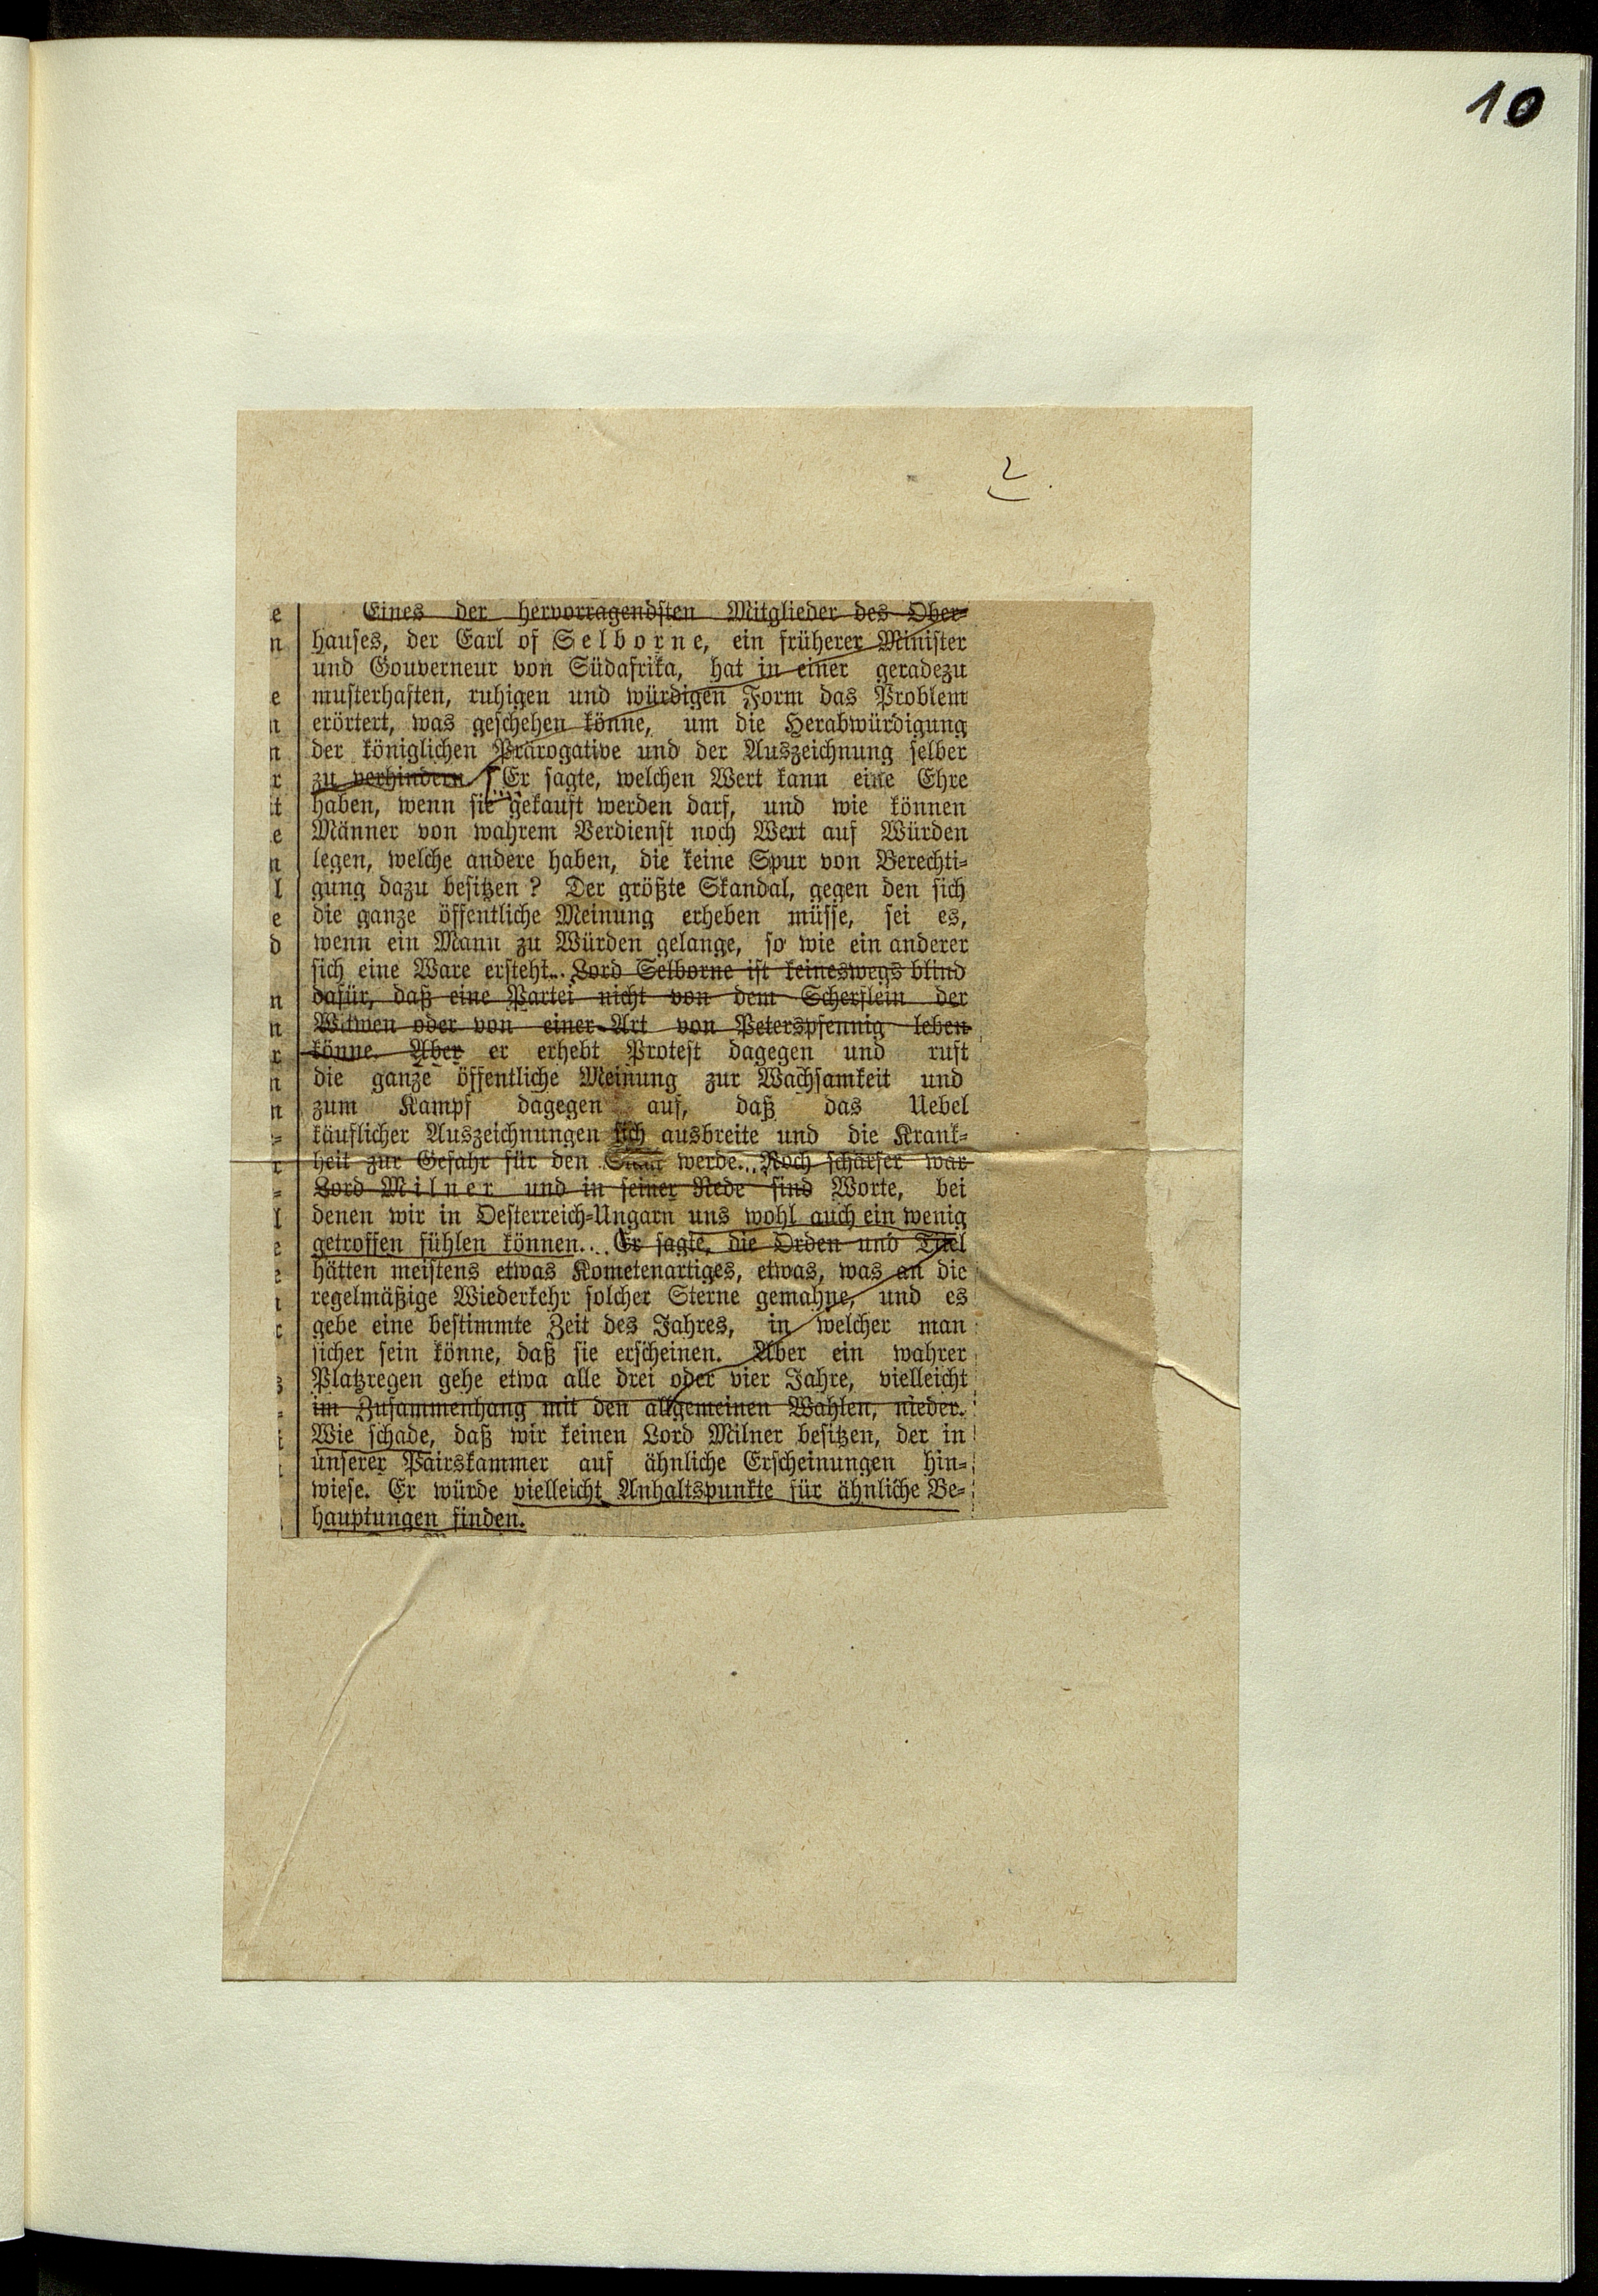 10
2
Eines der hervorragendsten Mitglieder des Ober-
hauses, der Earl of Selborne, ein früherer Minister
und Gouverneur von Südafrika, hat in einer geradezu
musterhaften, ruhigen und würdigen Form das Problem
erörtert, was geschehen könne, um die Herabwürdigung
der königlichen Prärogative und der Auszeichnung selber
zu verhindern. Er sagte, welchen Wert kann eine Ehre
haben, wenn sie gekauft werden darf, und wie können
Männer von wahrem Verdienst noch Wert auf Würden
legen, welche andere haben, die keine Spur von Berechti-
gung dazu besitzen? Der größte Skandal, gegen den sich
die ganze öffentliche Meinung erheben müsse, sei es,
wenn ein Mann zu Würden gelange, so wie ein anderer
sich eine Ware ersteht... Lord Selborne ist keineswegs blind
dafür, daß eine Partei nicht von dem Scherflein der
Witwen oder von einer Art von Peterspfennig leben
könne. Aber er erhebt Protest dagegen und ruft
die ganze öffentliche Meinung zur Wachsamkeit und
zum Kampf dagegen auf, daß das Uebel
käuflicher Auszeichnungen sich ausbreite und die Krank-
heit zur Gefahr für den werde... Noch schärfer war
Lord Milner und in seiner Rede sind Worte, bei
denen wir in Oesterreich-Ungarn uns wohl auch ein wenig
getroffen fühlen können... Er sagte, die Orden und Titel
hätten meistens etwas Kometenartiges, etwas, was an die
regelmäßige Wiederkehr solcher Sterne gemahne, und es
gebe eine bestimmte Zeit des Jahres, in welcher man
sicher sein könne, daß sie erscheinen. Aber ein wahrer
Platzregen gehe etwa alle drei oder vier Jahre, vielleicht
im Zusammenhang mit den allgemeinen Wahlen, nieder.
Wie schade, daß wir keinen Lord Milner besitzen, der in
unserer Pairskammer auf ähnliche Erscheinungen hin-
wiese. Er würde vielleicht Anhaltspunkte für ähnliche Be-
hauptungen finden.